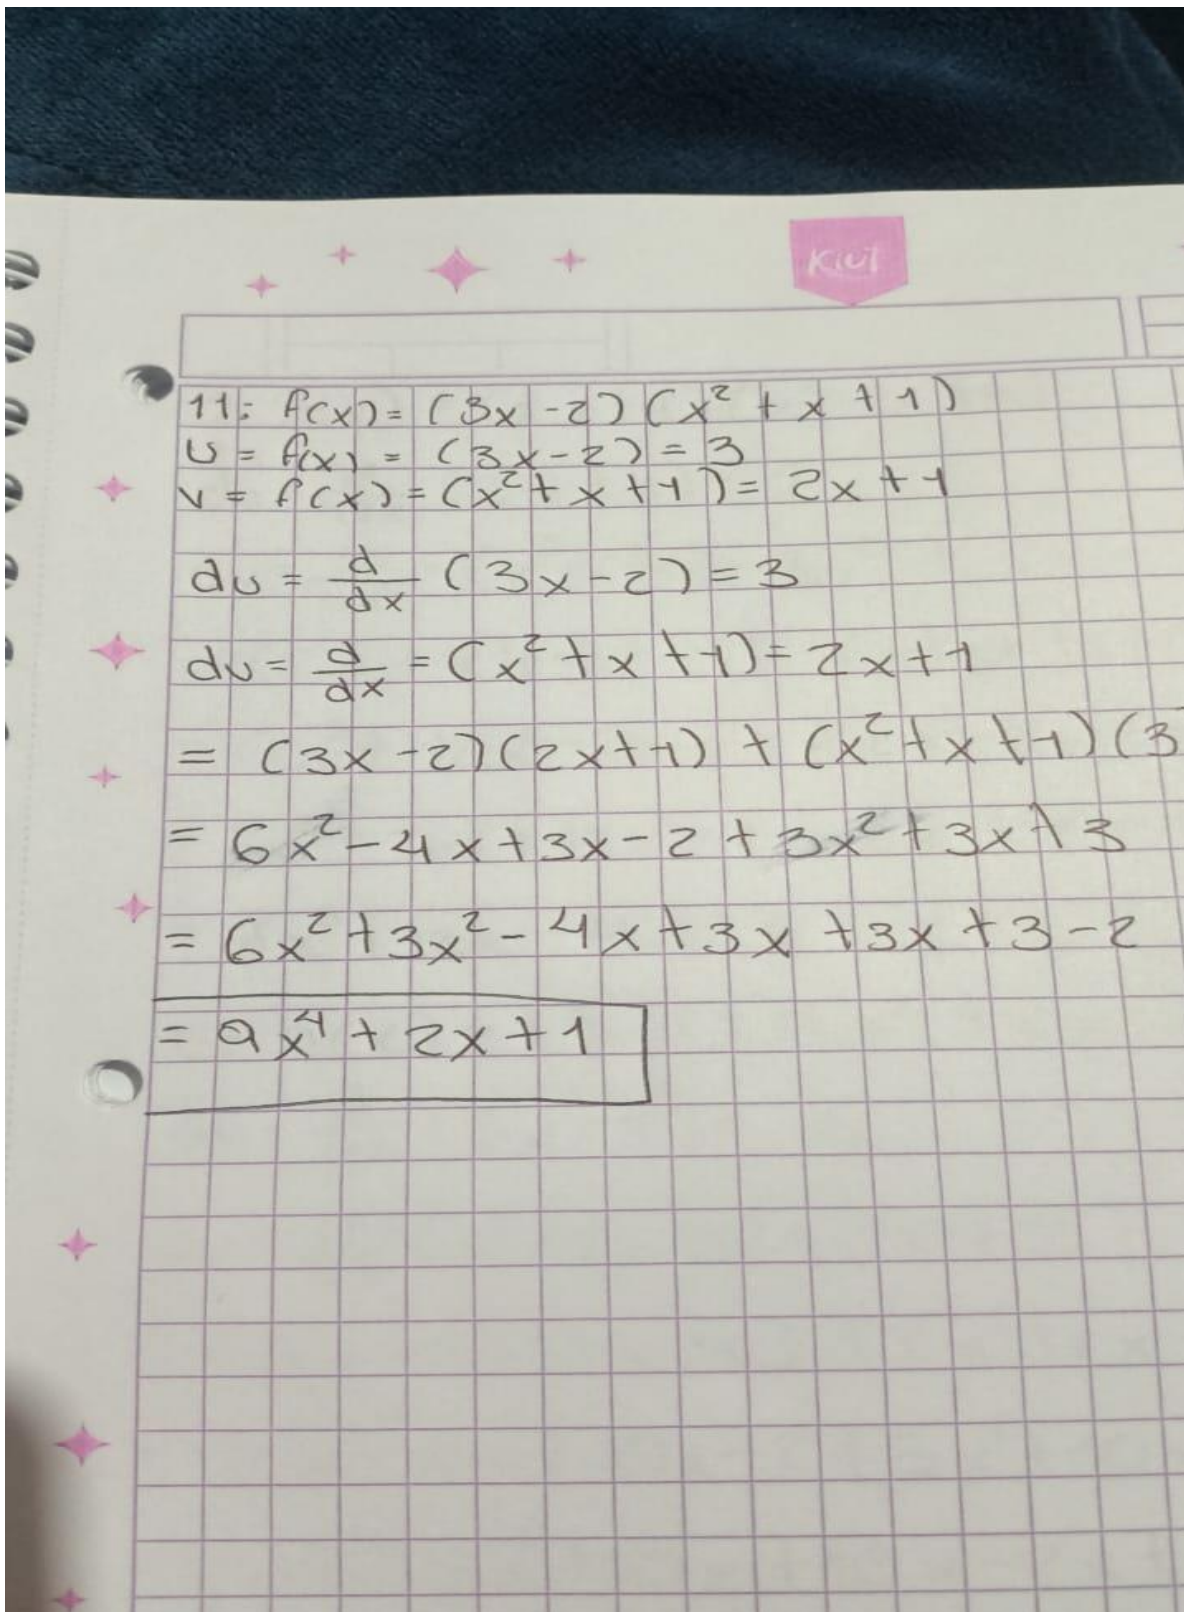 Kiut
11: f(x) = (3x - 2) (x² + x + 1)
u = f(x) = (3x - 2) = 3
v = f(x) = (x² + x + 1) = 2x + 1
du = d/dx (3x - 2) = 3
du = d/dx = (x² + x + 1) = 2x + 1
= (3x - 2)(2x + 1) + (x² + x + 1)(3
= 6x² - 4x + 3x - 2 + 3x² + 3x + 3
= 6x² + 3x² - 4x + 3x + 3x + 3 - 2
= 9x⁴ + 2x + 1